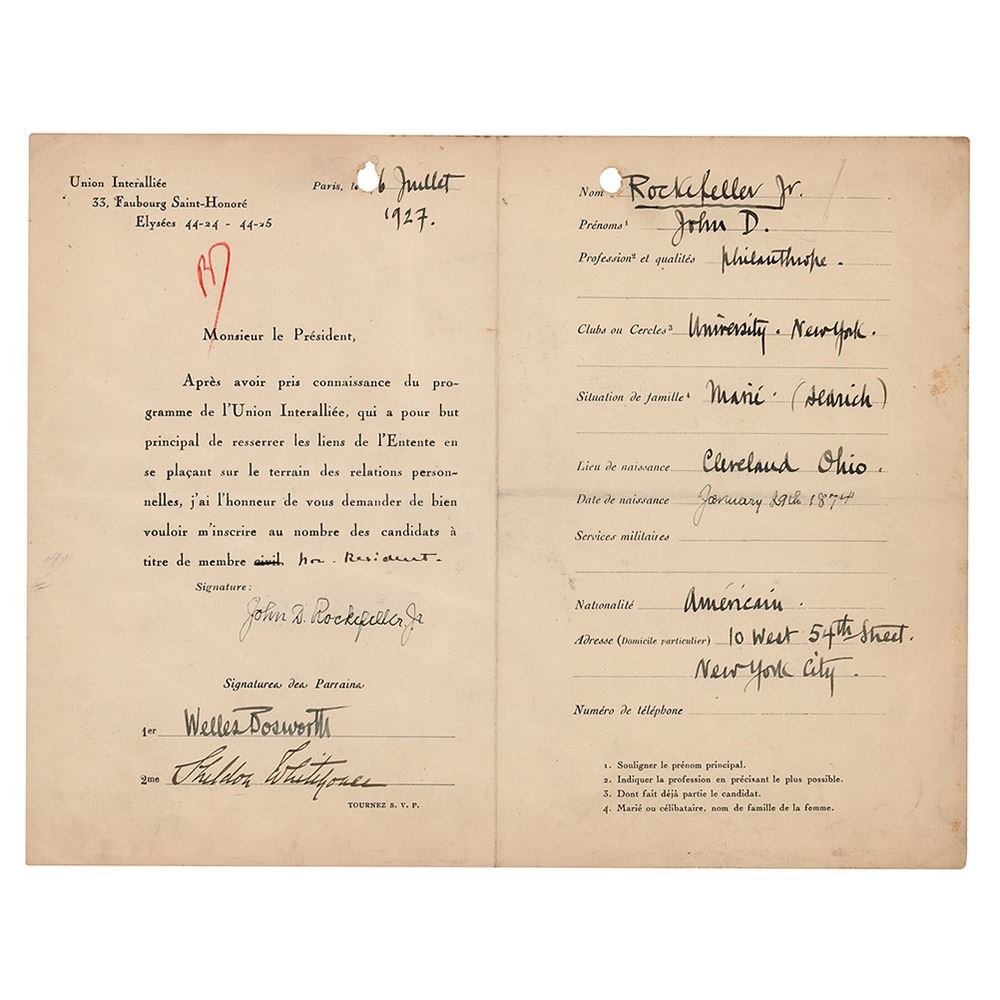 Union Interalliée
33, Faubourg Saint-Honoré
Elysées 44-24 - 44-25
Paris, le 6 Juillet
1927.
Monsieur le Président,
Après avoir pris connaissance du pro-
gramme de l'Union Interalliée, qui a pour but
principal de resserrer les liens de l'Entente en
se plaçant sur le terrain des relations person-
nelles, j'ai l'honneur de vous demander de bien
vouloir m'inscrire au nombre des candidats à
titre de membre civil. non-Resident-
Signature:
John D. Rockefeller Jr
Signatures des Parrains
1er Welles Bosworth
2me Sheldon Whitehouse
TOURNEZ S. V. P.
Nom Rockefeller Jr.
Prénoms¹ John D.
Profession² et qualités philanthrope.
Clubs ou Cercles³ University. New York.
Situation de famille⁴ Marié. (Aldrich)
Lieu de naissance Cleveland Ohio.
Date de naissance January 29th 1874
Services militaires
Nationalité Américain.
Adresse (Domicile particulier) 10 West 54th Street.
New York City.
Numéro de téléphone
1. Souligner le prénom principal.
2. Indiquer la profession en précisant le plus possible.
3. Dont fait déjà partie le candidat.
4. Marié ou célibataire, nom de famille de la femme.